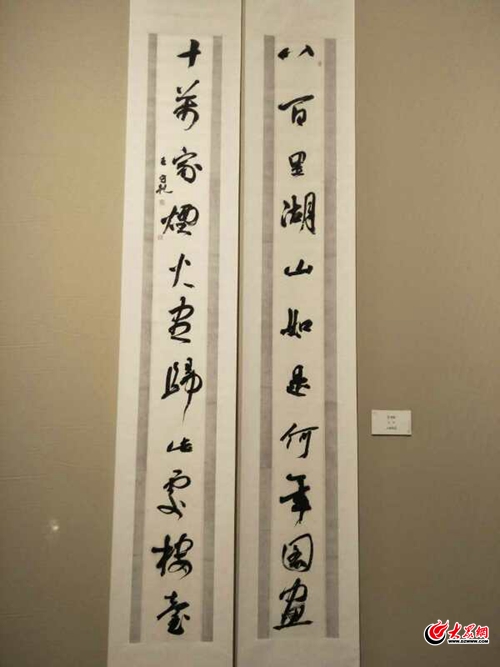 八百里湖山知是何年圖畫
十萬家煙火盡歸此處樓臺
大眾网
WWW.DZWWW.COM